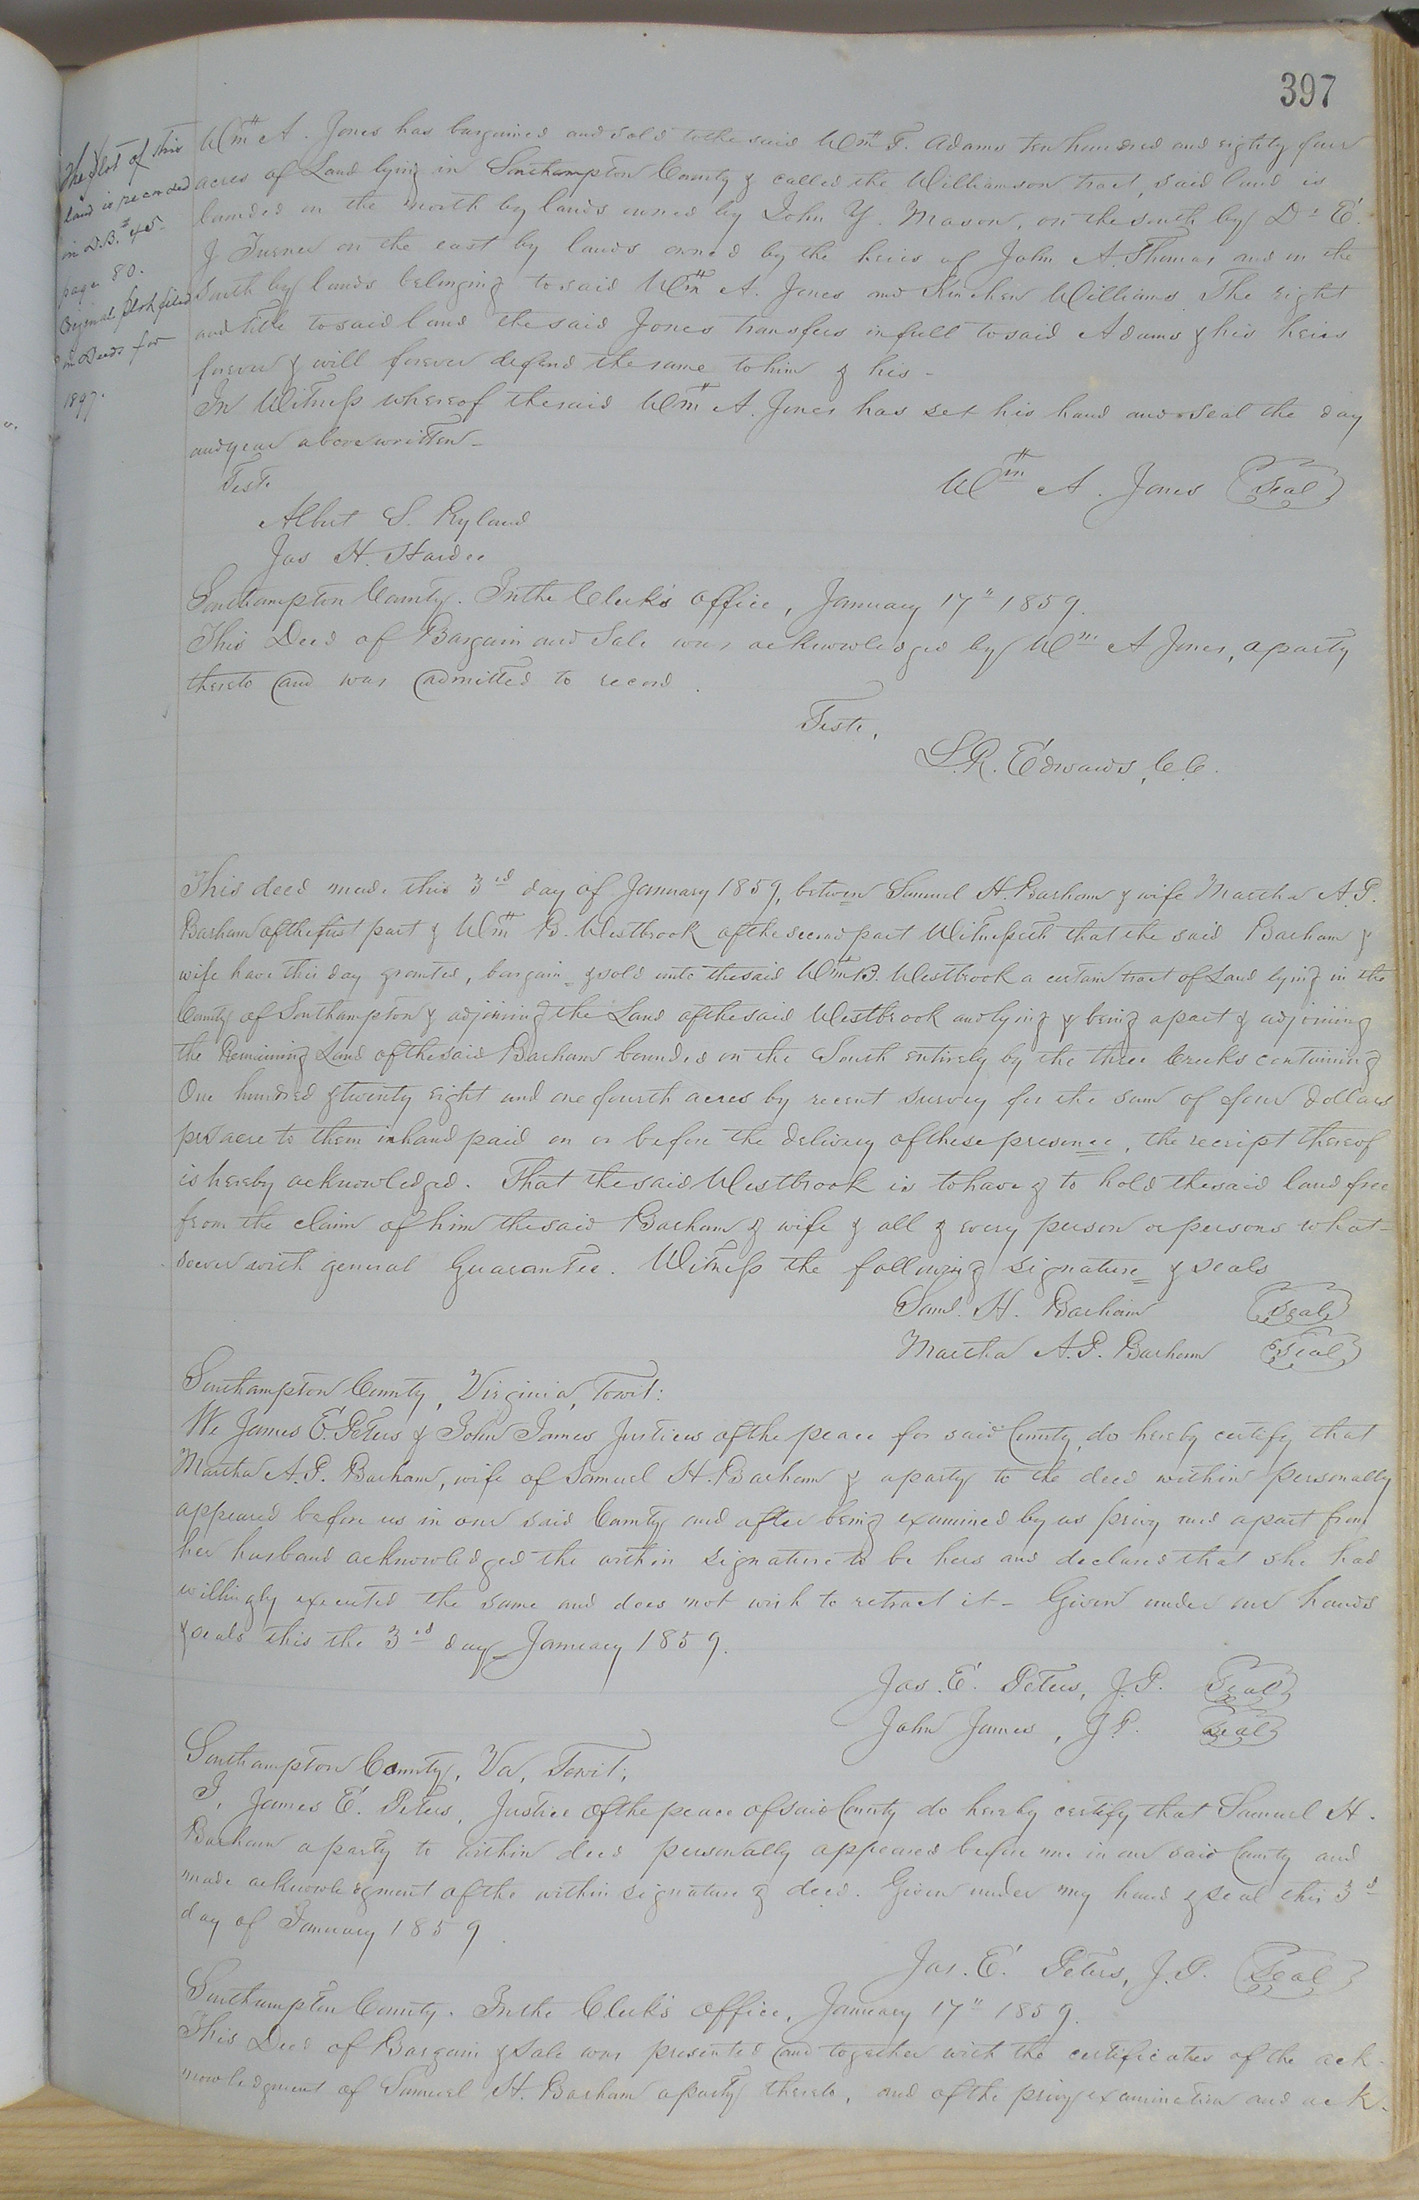 397
The plot of this
land is recorded
in D.B. # 45
page 80.
Original plot filed
in Deeds for
1897.
Wm A. Jones has bargained and sold to the said Wm F. Adams ten hundred and eighty four
acres of Land lying in Southampton County & called the Williamson tract, said land is
bounded on the north by lands owned by John Y. Mason, on the south by Dr E.
J. Turner on the east by lands owned by the heirs of John A. Thomas and on the
South by lands belonging to said Wm A. Jones and Kinchen Williams. The right
and title to said land the said Jones transfers in full to said Adams & his heirs
forever & will forever defend the same to him & his -
In Witness whereof the said Wm A. Jones has set his hand and Seal the day
and year above written -
Teste
Wm A. Jones (Seal)
Albert S. Ryland
Jas H. Hardee
Southampton County. In the Clerk's office, January 17" 1859.
This Deed of Bargain and Sale was acknowledged by Wm A Jones, a party
thereto and was admitted to record.
Teste,
L.R. Edwards, C.C.
This deed made this 3rd day of January 1859, between Samuel H. Barham & wife Martha A.P.
Barham of the first part & Wm B. Westbrook of the second part Witnesseth that the said Barham &
wife have this day granted, bargain & sold unto the said Wm B. Westbrook a certain tract of Land lying in the
County of Southampton & adjoining the Land of the said Westbrook and lying & being a part & adjoining
the Remaining Land of the said Barham bounded on the South entirely by the three Creeks containing
One hundred & twenty eight and one fourth acres by recent survey for the sum of four dollars
per acre to them in hand paid on or before the delivery of these presence, the receipt thereof
is hereby acknowledged. That the said Westbrook is to have & to hold the said land free
from the claim of him the said Barham & wife & all & every person or persons what-
soever with general Guarantee. Witness the following signature & seals
Saml. H. Barham (Seal)
Martha A.P. Barham (Seal)
Southampton County, Virginia, Towit:
We James E. Peters & John James Justices of the peace for said County, do hereby certify that
Martha A.P. Barham, wife of Samuel H. Barham & a party to the deed within personally
appeared before us in our said County and after being examined by us privy and apart from
her husband acknowledged the within signature to be hers and declared that she had
willingly executed the same and does not wish to retract it - Given under our hands
& seals this the 3rd day January 1859.
Jas. E. Peters, J.P. (Seal)
John James, J.P. (Seal)
Southampton County, Va, Towit;
I, James E. Peters, Justice of the peace of said County do hereby certify that Samuel H.
Barham a party to within deed personally appeared before me in our said County and
made acknowledgment of the within signature & deed. Given under my hand & seal this 3d
day of January 1859.
Jas. E. Peters, J.P. (Seal)
Southampton County. In the Clerk's office, January 17" 1859.
This Deed of Bargain & Sale was presented and together with the certificates of the ack-
nowledgment of Samuel H. Barham a party thereto, and of the privy examination and ack-